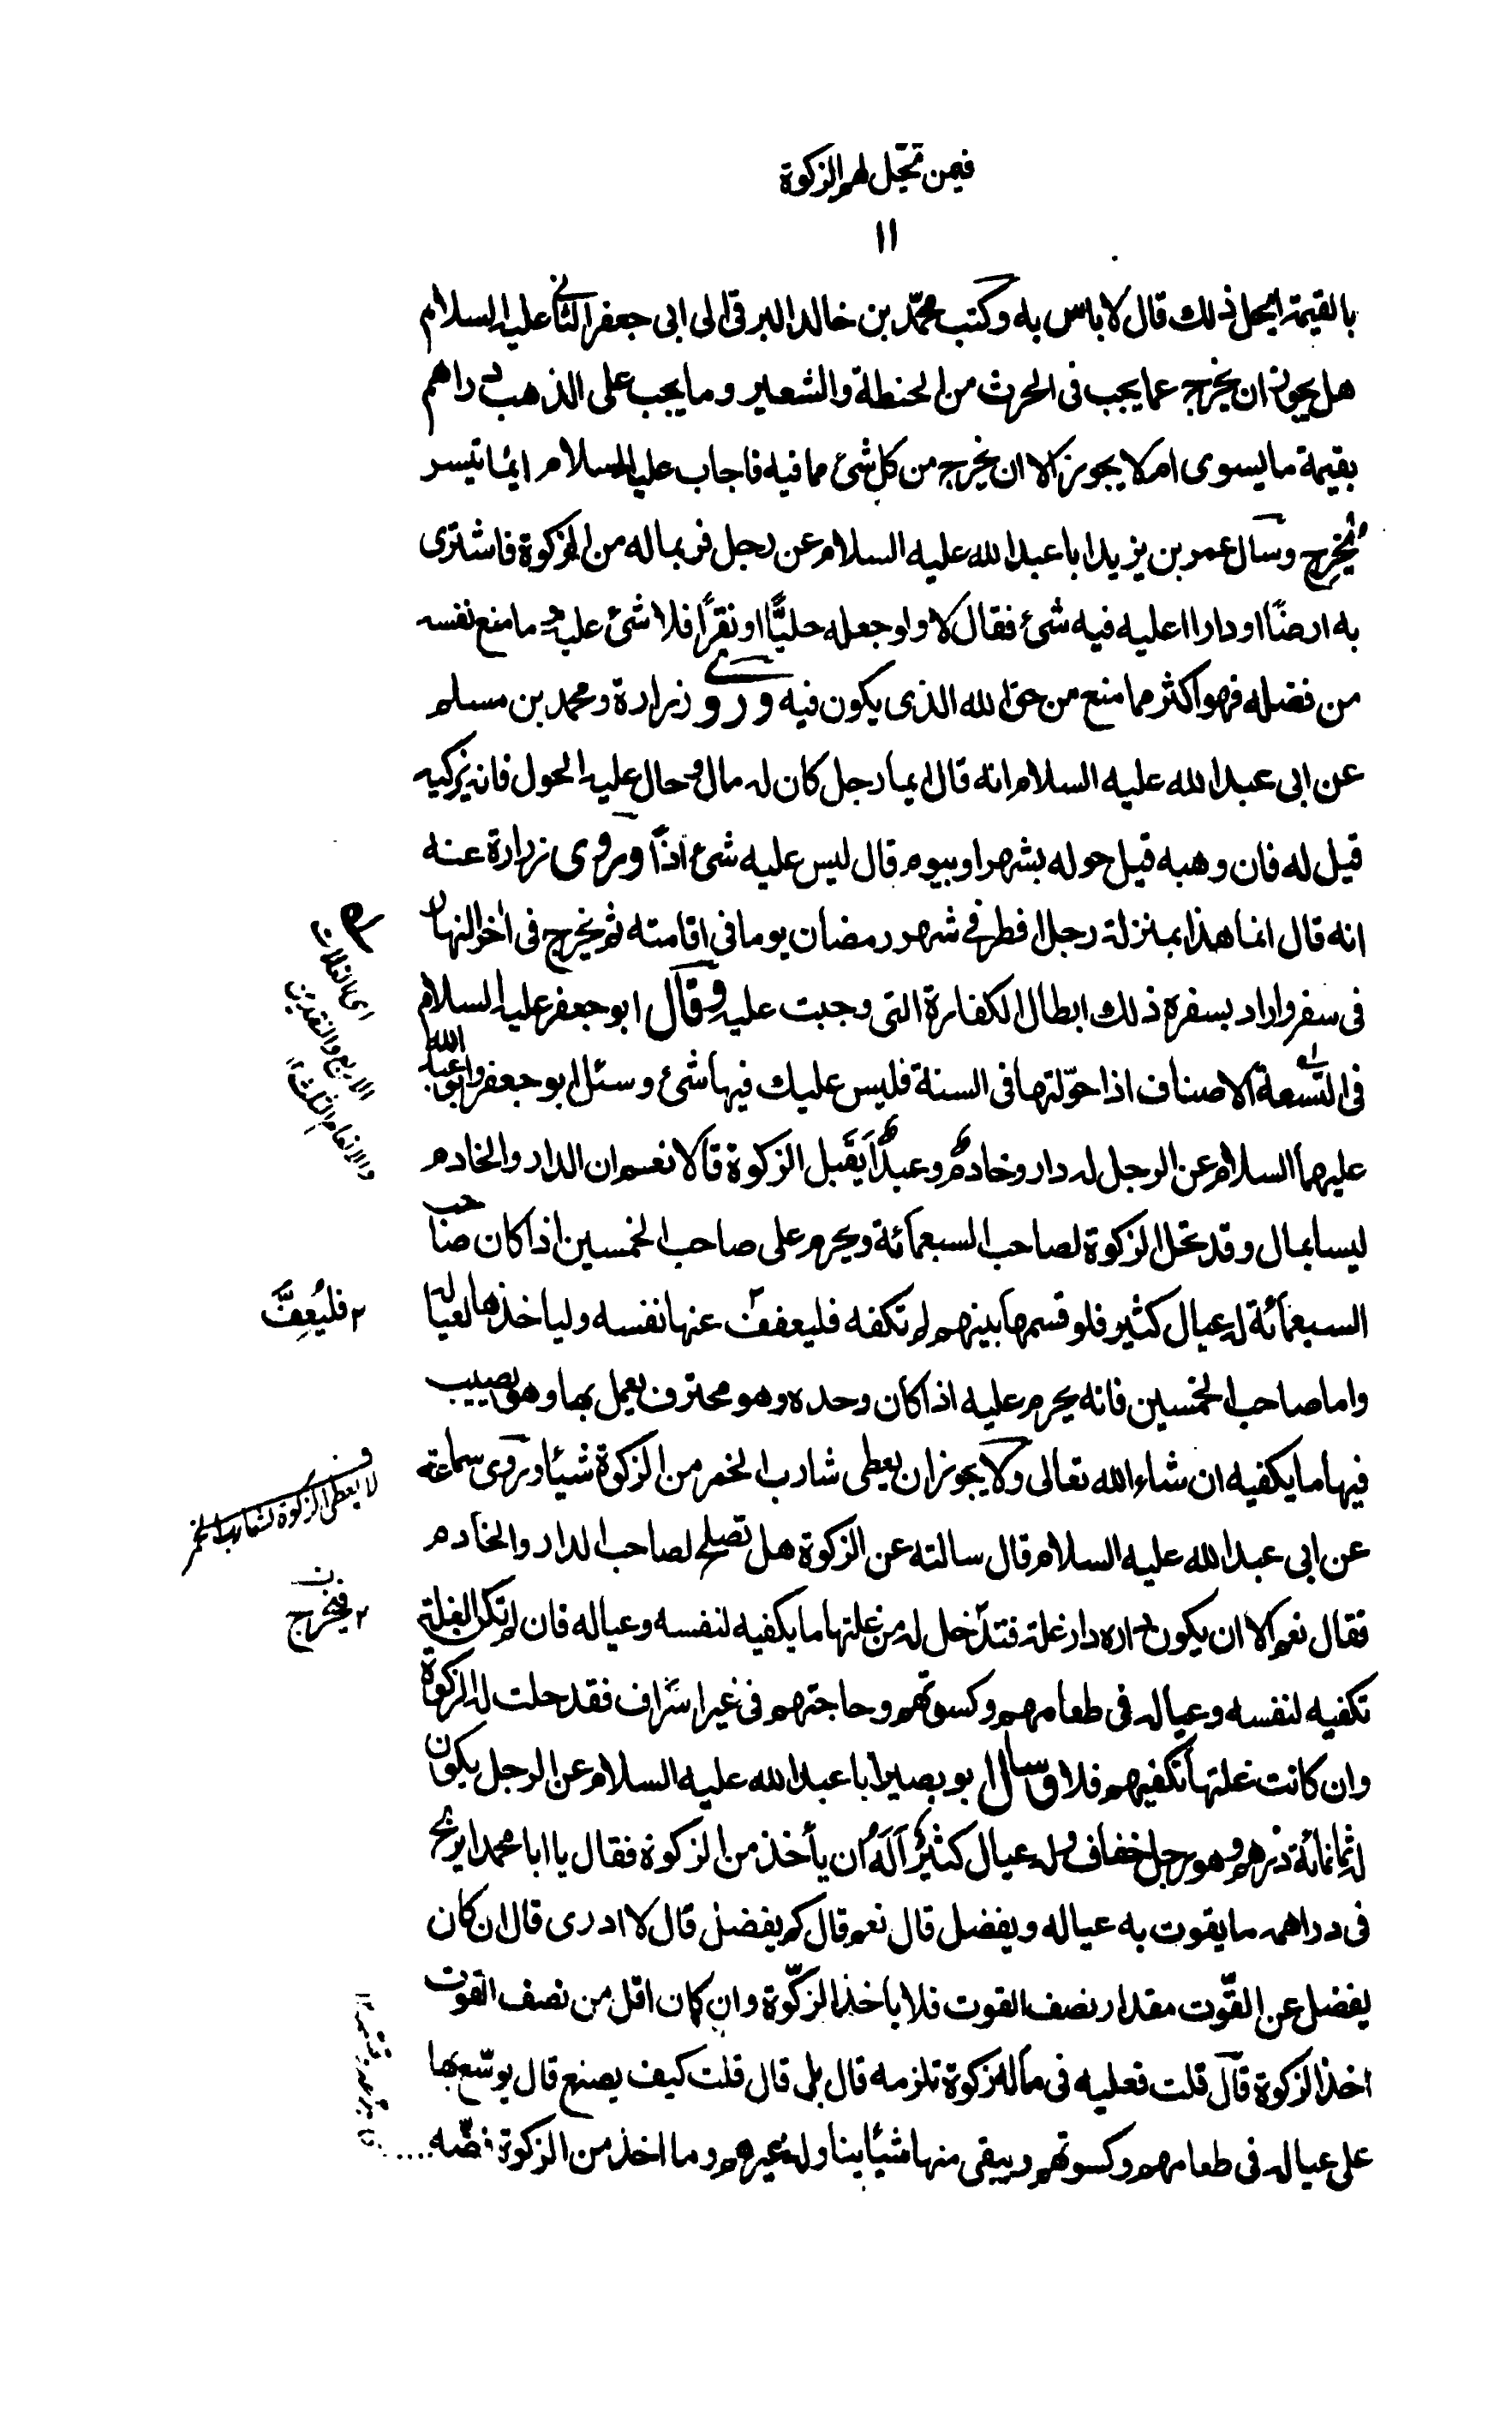 فيمن تحل لهم الزكوة
١١
بالقيمة ايحل ذلك قال لا باس به وكتب محمّد بن خالد البرقى الى ابى جعفر الثانى عليه السلام
هل يجوز ان يخرج عما يجب فى الحرث من الحنطة والشعير وما يجب على الذهب دراهم
بقيمة ما يسوى ام لا يجوز الا ان يخرج من كل شئ ما فيه فاجاب عليه السلام ايما تيسر
يُخرج وسال عمر بن يزيد ابا عبد الله عليه السلام عن رجل فر بماله من الزكوة فاشترى
به ارضًا او دارا اعليه فيه شئ فقال لا ولو جعله حليًّا او نقرًا فلا شئ عليه و ما منع نفسه
من فضله فهو اكثر مما منع من حق الله الذى يكون فيه وروى زرارة ومحمد بن مسلم
عن ابى عبد الله عليه السلام انه قال ايما رجل كان له مال وحال عليه الحول فانه يزكيه
قيل له فان وهبه قبل حوله بشهر او بيوم قال ليس عليه شئ اذًا وروى زرارة عنه
انه قال انما هذا بمنزلة رجل افطر فى شهر رمضان يوما فى اقامته ثم يخرج فى اخر النهار
فى سفر واراد بسفره ذلك ابطال الكفارة التى وجبت عليه وقال ابو جعفر عليه السلام
فى التسعة الاصناف اذا حوّلتها فى السنة فليس عليك فيها شئ وسئل ابو جعفر وابو عبد الله
عليهما السلام عن الرجل له دار وخادم وعبد ايقبل الزكوة قالا نعم ان الدار والخادم
ليسا بمال وقد تحل الزكوة لصاحب السبعمائة ويحرم على صاحب الخمسين اذا كان صاحب
السبعمائة له عيال كثير فلو قسمها بينهم لم تكفه فليعفف عنها نفسه ولياخذها لعياله
٢ فليُعِفَّ
واما صاحب الخمسين فانه يحرم عليه اذا كان وحده وهو محترف يعمل بها وهو يصيب
فيها ما يكفيه ان شاء الله تعالى ولا يجوز ان يعطى شارب الخمر من الزكوة شيئا وروى سماعة
لا يعطى الزكوة لشارب الخمر
عن ابى عبد الله عليه السلام قال سالته عن الزكوة هل تصلح لصاحب الدار والخادم
فقال نعم الا ان يكون داره دار غلة فتدخل له من غلتها ما يكفيه لنفسه وعياله فان لم تكن الغلة
٢ فيخرج
تكفيه لنفسه وعياله فى طعامهم وكسوتهم وحاجتهم فى غير اسراف فقد حلت له الزكوة
وان كانت غلتها تكفيهم فلا وسال ابو بصير ابا عبد الله عليه السلام عن الرجل يكون
له ثمانمائة درهم وهو رجل خفاف وله عيال كثير أله ان يأخذ من الزكوة فقال يا ابا محمد ايربح
فى دراهمه ما يقوت به عياله ويفضل قال نعم قال كم يفضل قال لا ادرى قال ان كان
يفضل عن القوت مقدار نصف القوت فلا ياخذ الزكوة وان كان اقل من نصف القوت
اخذ الزكوة قال قلت فعليه فى ماله زكوة تلزمه قال بلى قال قلت كيف يصنع قال يوسّع بها
على عياله فى طعامهم وكسوتهم ويبقى منها شيئا يناوله غيرهم وما اخذ من الزكوة فضّه